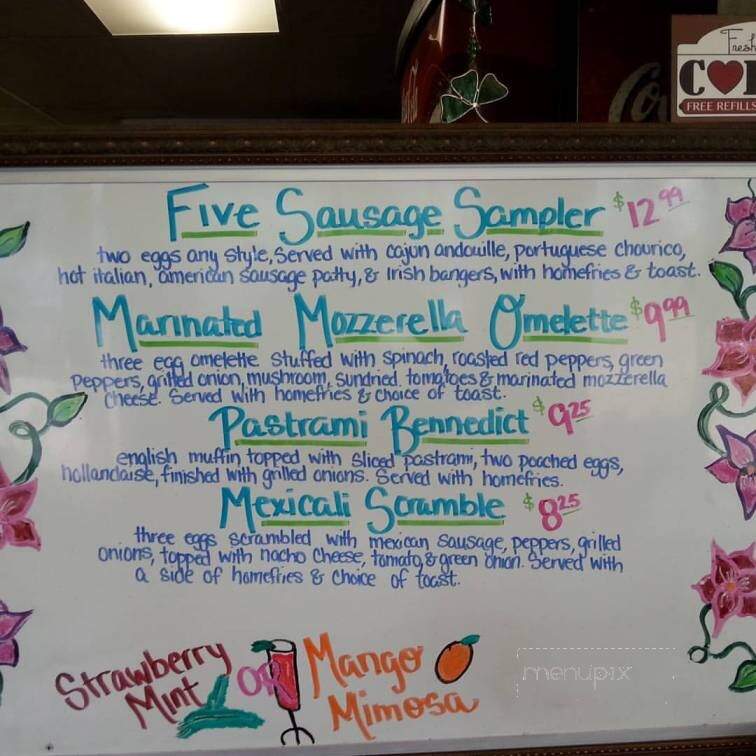 Fresh
FREE REFILLS
Five Sausage Sampler $12.99
two eggs any style, Served with cajun andouille, portuguese chourico,
hot italian, american sausage patty, & Irish bangers, with homefries & toast.
Marinated Mozzerella Omelette $9.99
three egg omelette stuffed with spinach, roasted red peppers, green
peppers, grilled onion, mushroom, sundried tomatoes & marinated mozzerella
cheese. Served with homefries & choice of toast.
Pastrami Bennedict $9.25
english muffin topped with sliced pastrami, two poached eggs,
hollandaise, finished with grilled onions. Served with homefries.
Mexicali Scramble $8.25
three eggs scrambled with mexican sausage, peppers, grilled
onions, topped with nacho cheese, tomato, & green onion. Served with
a side of homefries & choice of toast.
Strawberry
Mint OR Mango
Mimosa
menupix